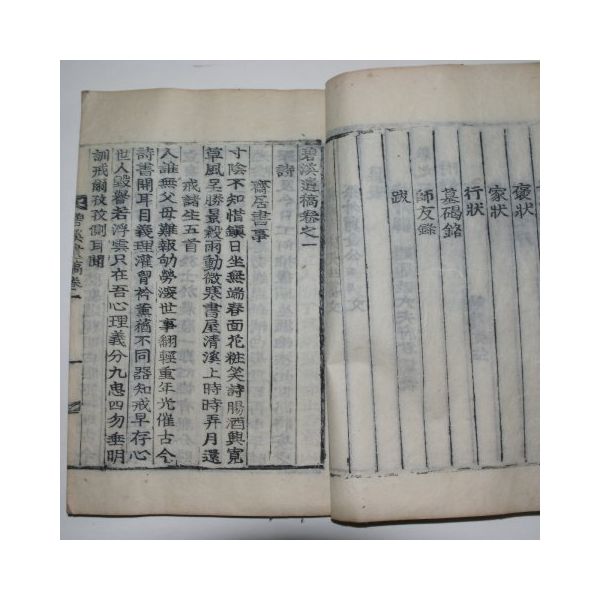 褒狀
家狀
行狀
墓碣銘
師友錄
跋
碧溪遺稿卷之一
詩
齋居書事
寸陰不知惜鎭日坐無端春面花粧笑詩腸酒興寬
草風呈勝景穀雨動微寒書屋清溪上時時弄月還
戒諸生五首
人誰無父母難報劬勞深世事翻輕重年光催古今
詩書開耳目義理灌胷衿薰蕕不同器知戒早存心
世人毀譽若浮雲只在吾心理義分九思四勿垂明
訓戒爾孜孜側耳聞
碧溪遺稿卷一